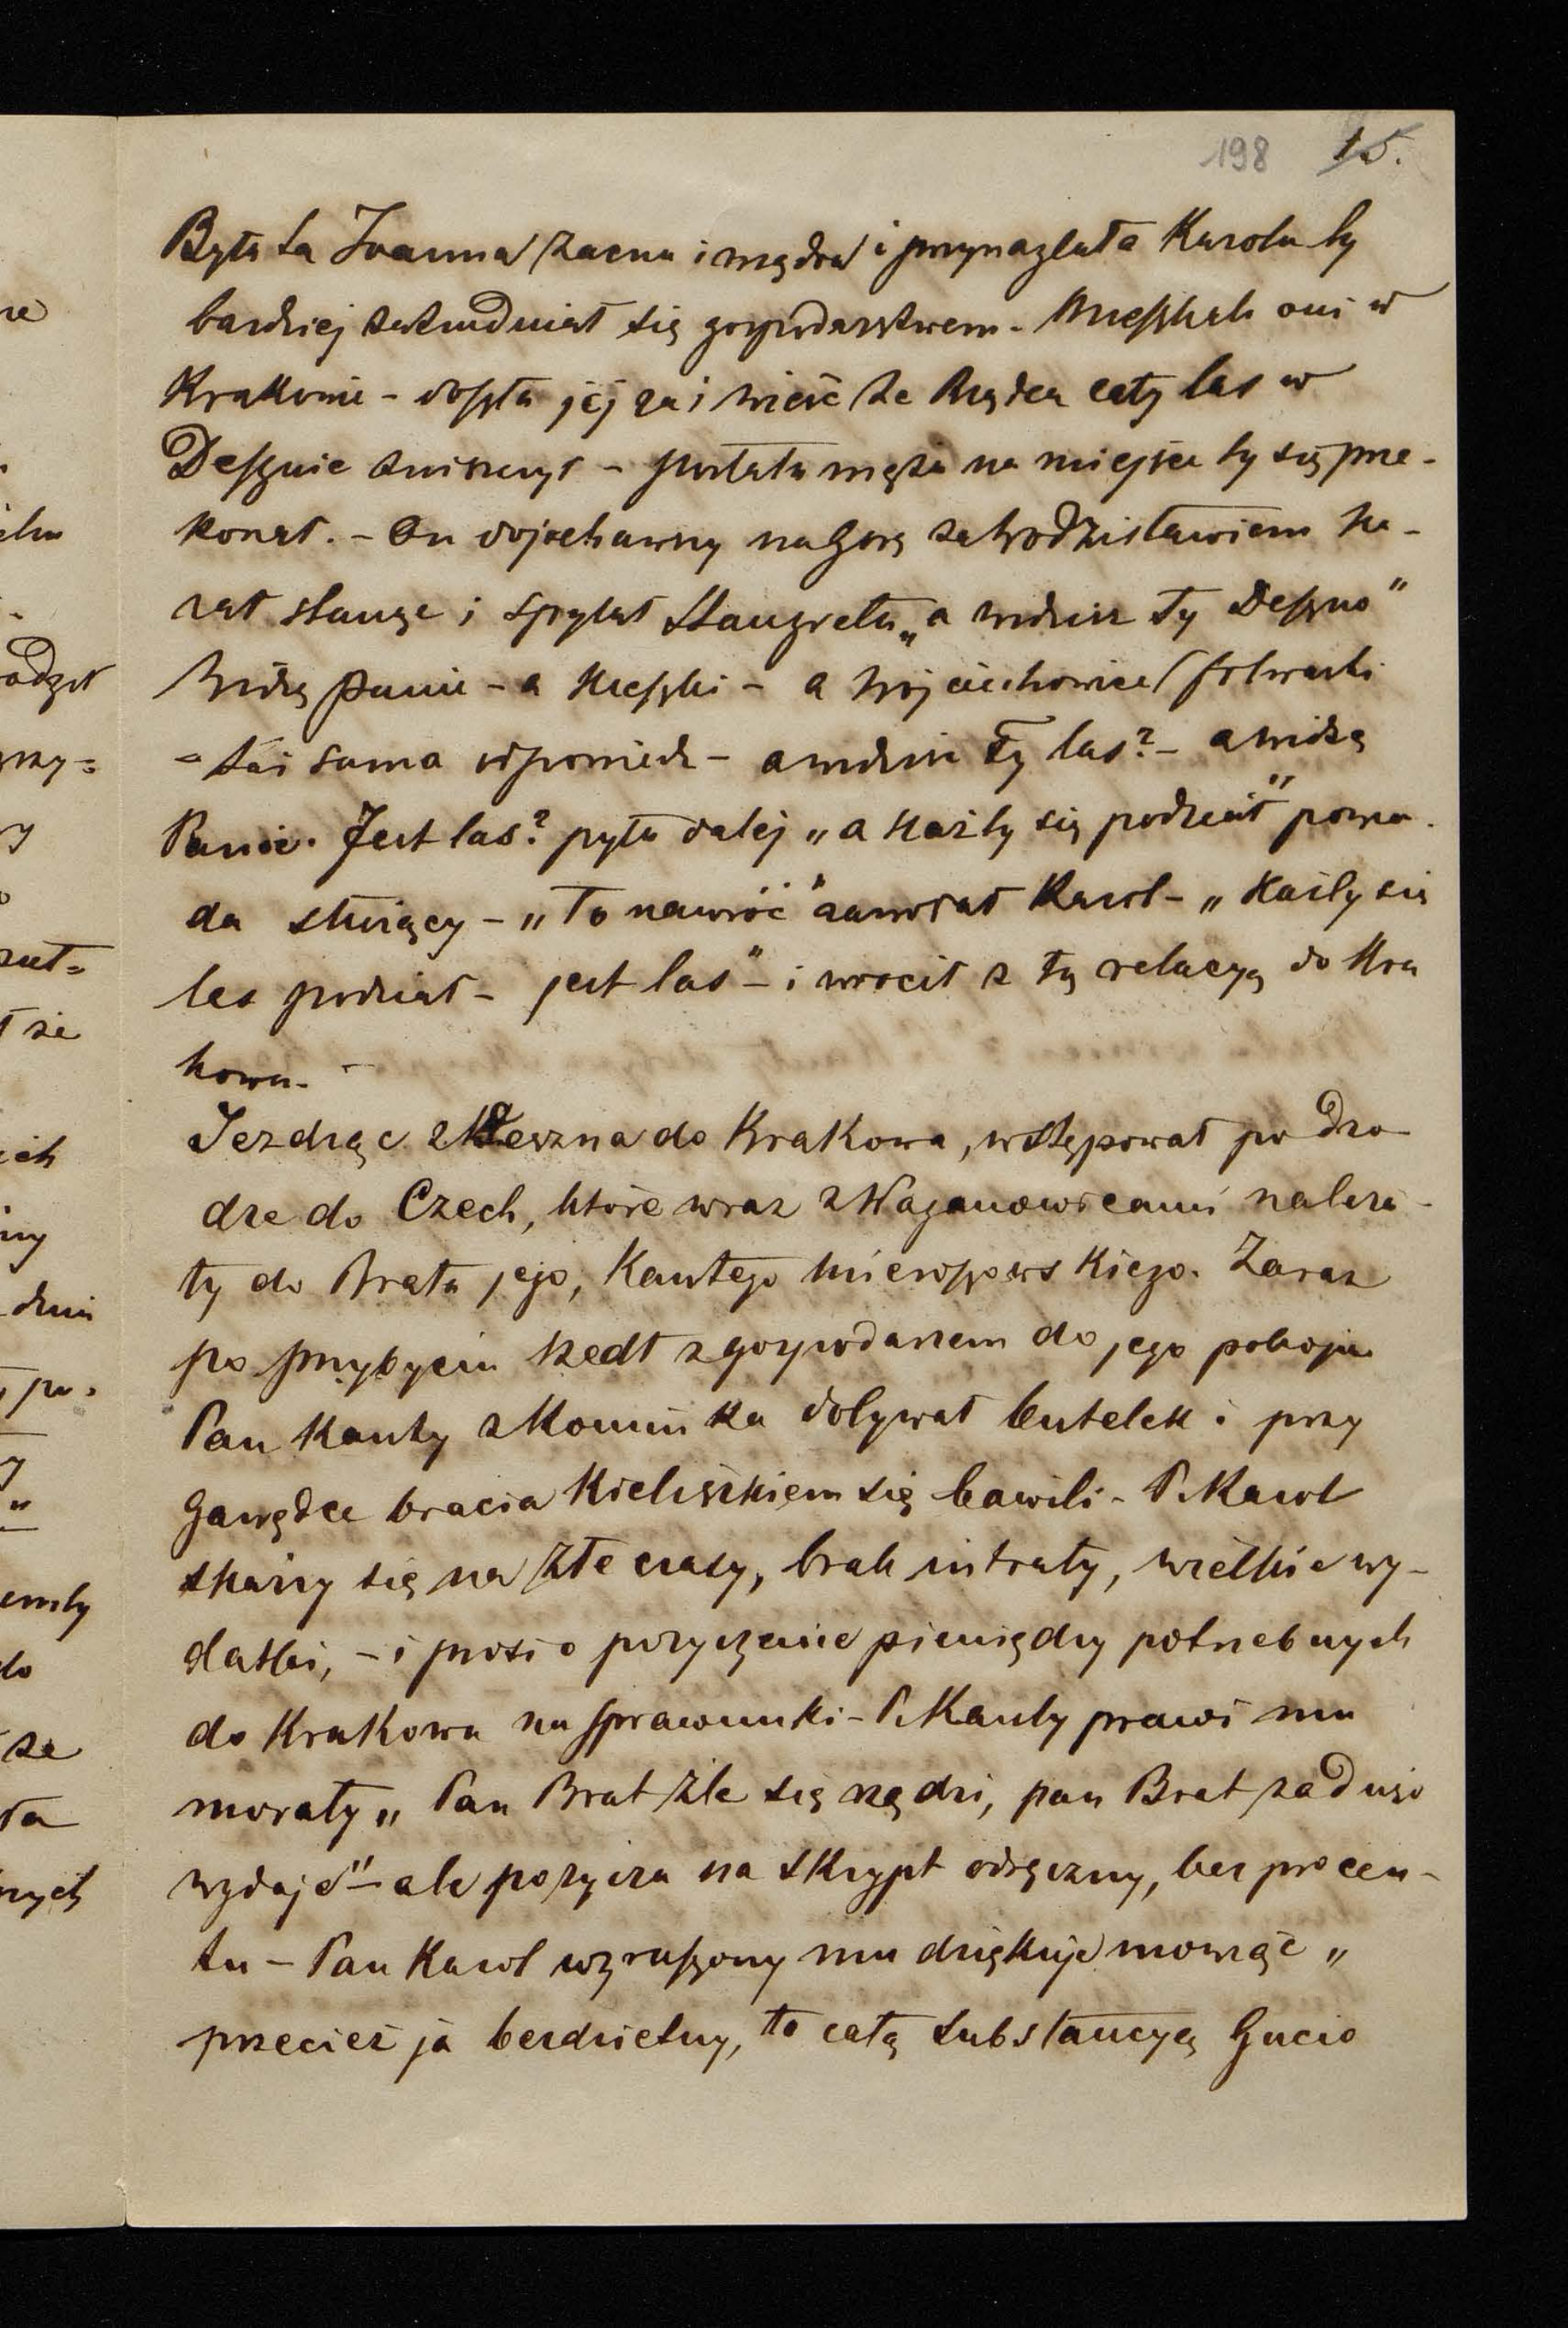 198 15.
Była ta Joanna zacna i mądra i przynaglała Karola by
bardziej zatrudniał się gospodarstwem - Mieszkali oni w
Krakowie - doszła jej zaś wieść że Rządca cały las w
Desznie zniszczył - posłała męża na miejsce by się prze-
konał. - On dojechawszy na Górę za Wodzisławiem ka-
zał stanąć i spytał Stangreta „a widzisz ty Deszno"
Widzę panie - a Mieszki - a Wojciechowice (folwarki
= taż sama odpowiedź - a widzisz ty las? - a widzę
Panie. Jest las? pyta dalej „a każby się podział" powia-
da służący - „To nawróć" zawołał Karol - „Każby się
las podział - jest las" - i wrócił z tą relacyą do Kra
kowa. -
Jeżdżąc z Deszna do Krakowa, wstępował po dro-
dze do Czech, które wraz z Waganowicami należa-
ły do Brata jego, Kantego Mieroszowskiego. Zaraz
po przybyciu szedł z gospodarzem do jego pokoju
Pan Kanty z Kominka dobywał butelek i przy
Gawędce bracia Kieliszkiem się bawili - P. Karol
skarży się na złe czasy, brak intraty, wielkie wy-
datki, - i prosi o pożyczenie pieniędzy potrzebnych
do Krakowa na sprawunki - P. Kanty prawi mu
morały „ Pan Brat źle się rządzi, pan Brat za dużo
wydaje" - ale pożycza na skrypt odręczny, bez procen-
tu - Pan Karol wzruszony mu dziękuje mówiąc „
przecież ja bezdzietny, to całą substancyą Gucio